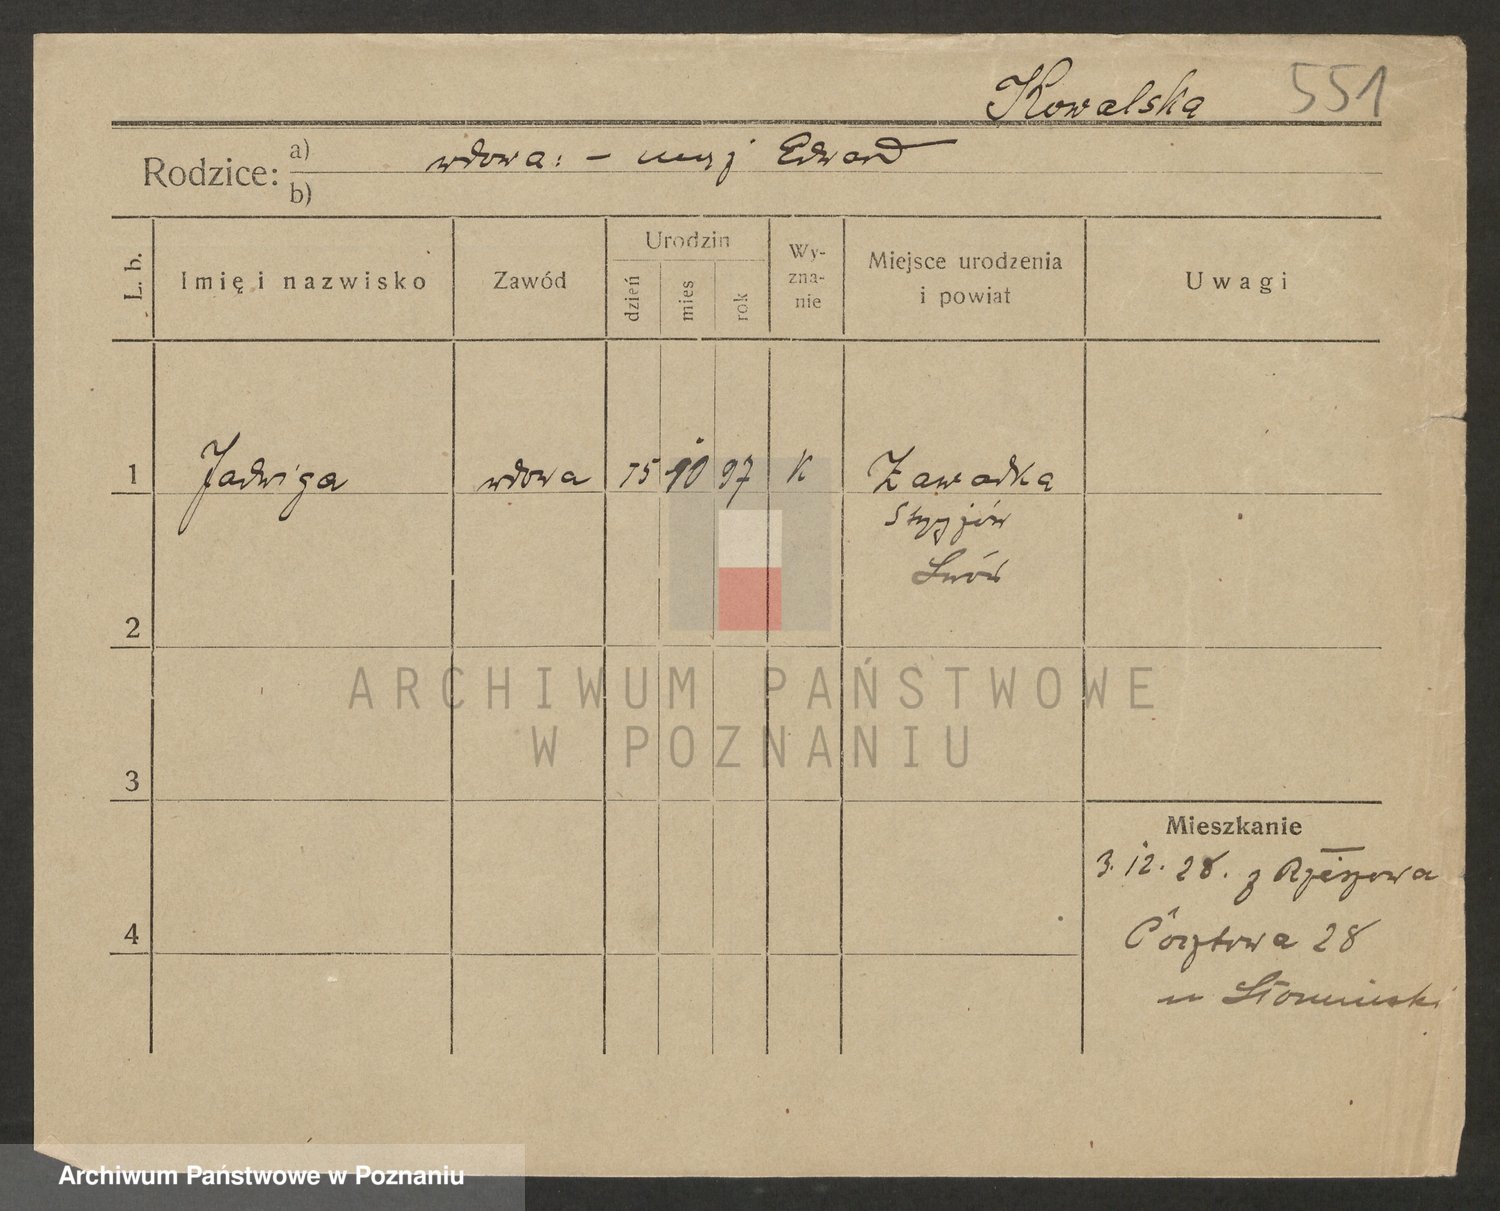 Kowalska 551
Rodzice: a) wdowa: – mąż Edward
b)
L. b. Imię i nazwisko Zawód Urodzin dzień mies rok Wy-zna-nie Miejsce urodzenia i powiat Uwagi
1 Jadwiga wdowa 15 10 97 K Zawadka
Stryjów
Lwów
2
3
4
Mieszkanie
3.12.28. z Rzeszowa
Pocztowa 28
u Słomiński
ARCHIWUM PAŃSTWOWE
W POZNANIU
Archiwum Państwowe w Poznaniu